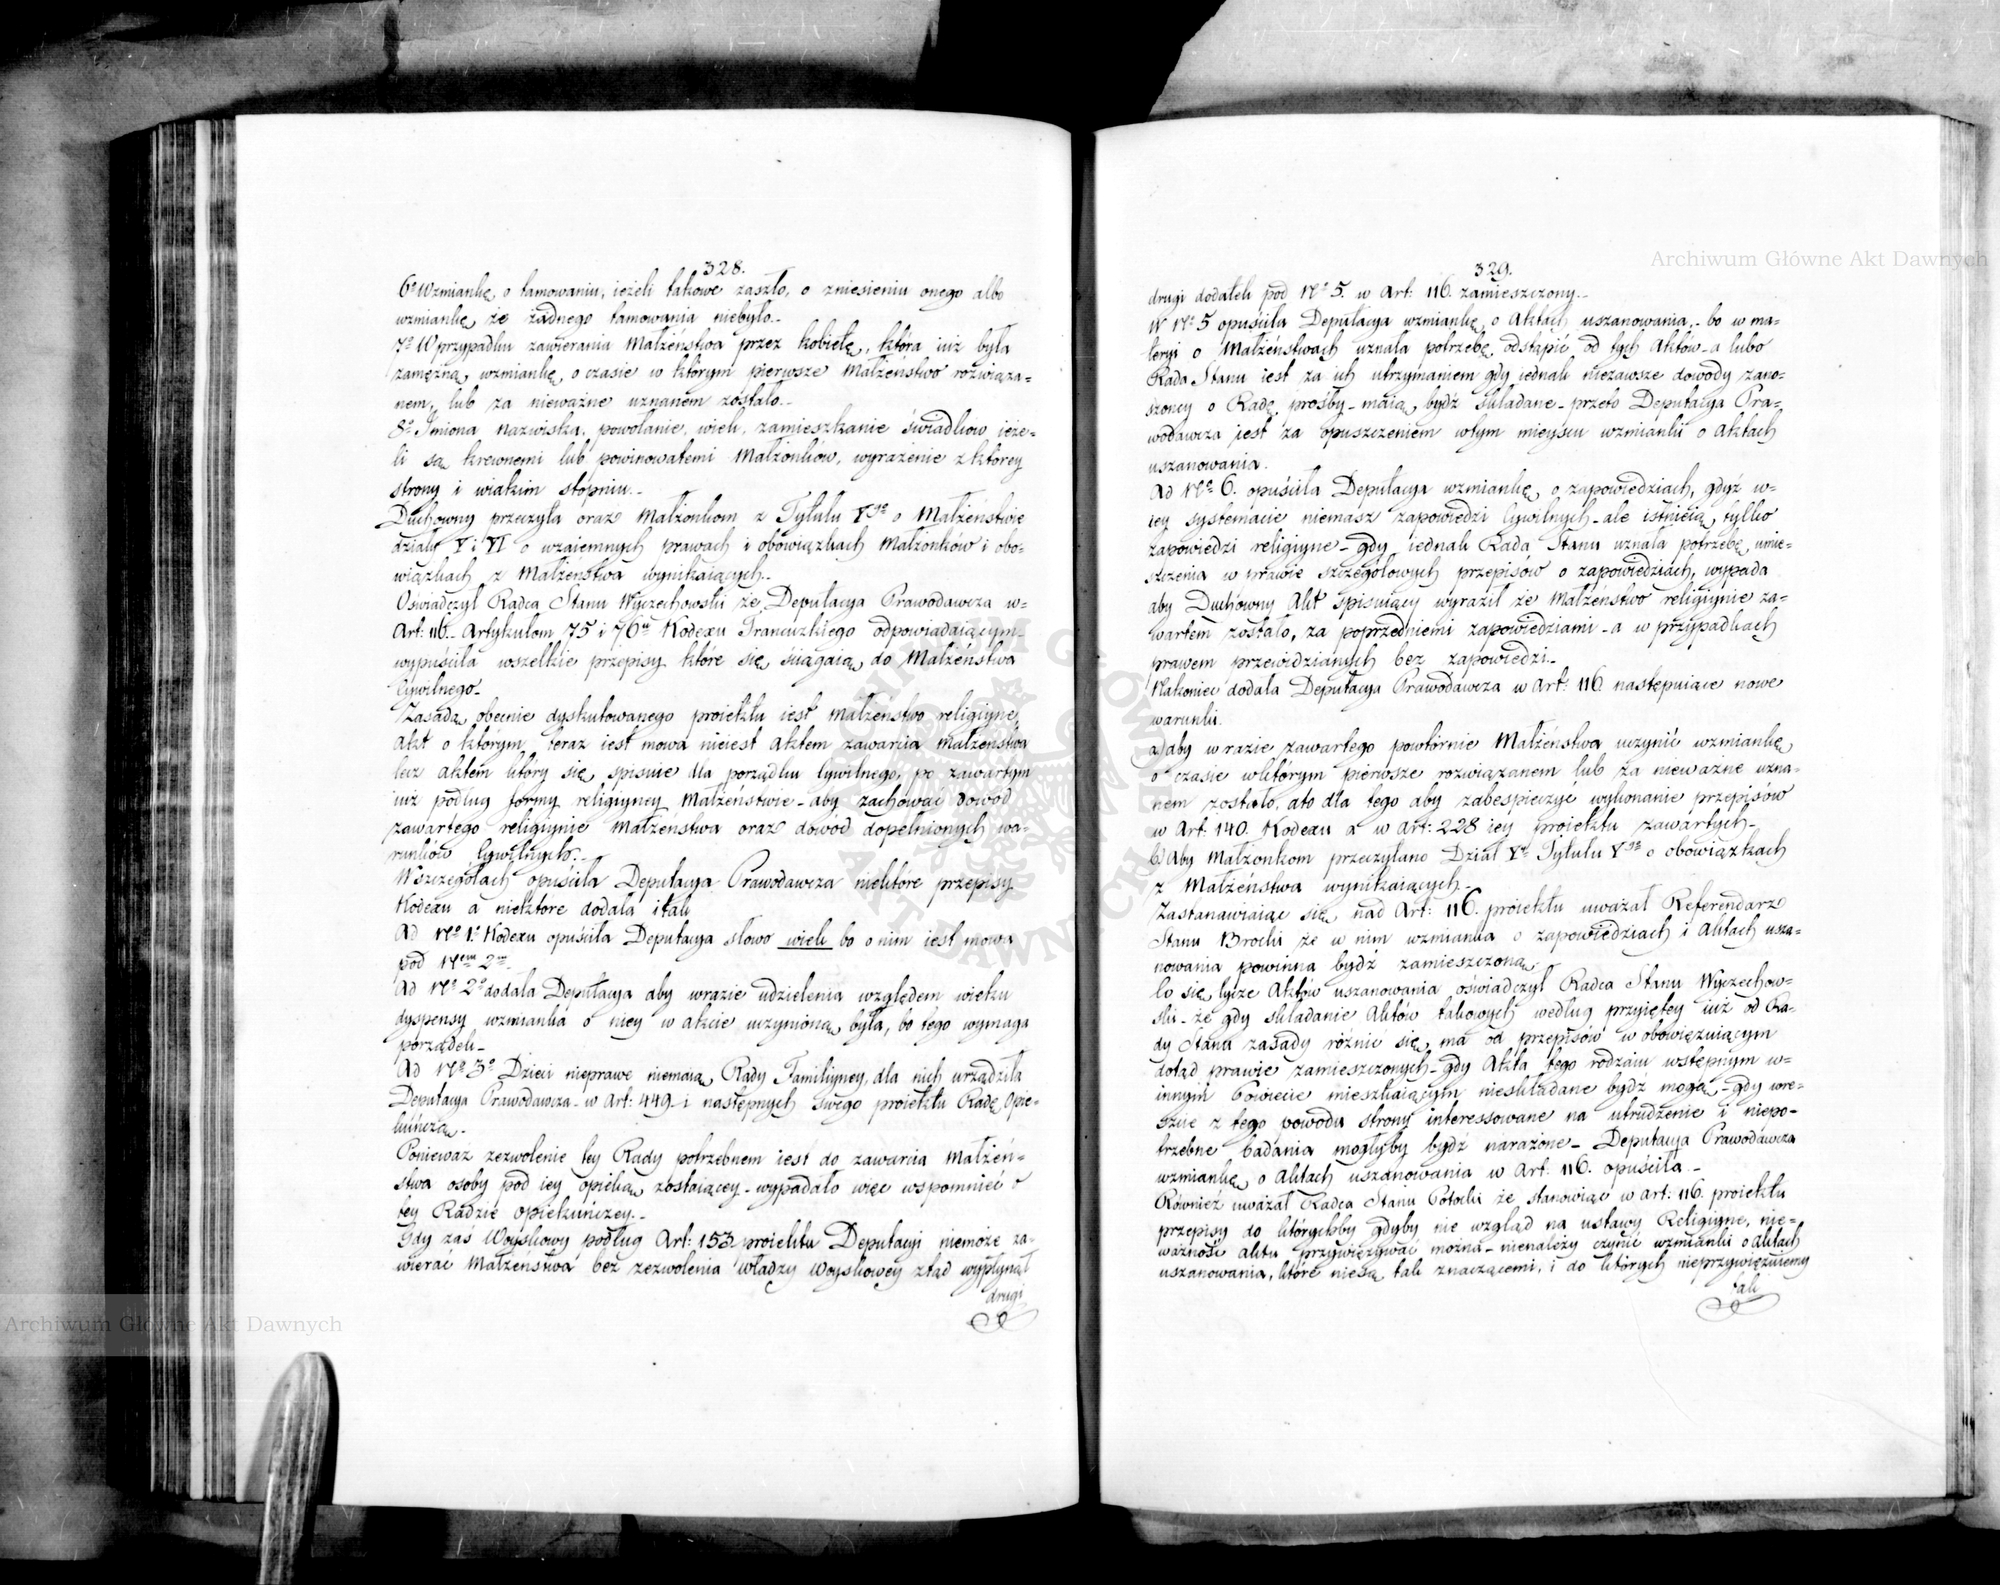 328.
6º Wzmiankę o tamowaniu, ieżeli takowe zaszło, o zniesieniu onego albo
wzmiankę że żadnego tamowania niebyło.-
7º W przypadku zawierania Małżeństwa przez kobietę, która iuż była
zamężną, wzmiankę, o czasie w którym pierwsze Małżeństwo rozwiąza=
nem, lub za nieważne uznanem zostało.-
8º Imiona nazwiska, powołanie, wiek, zamieszkanie świadkow ieże-
li są krewnemi lub powinowatemi Małżonków, wyrażenie z którey
strony i wiakim stopniu.-
Duchowny przeczyta oraz Małżonkom z Tytułu Vgo o Małżeństwie
działy V i VI o wzaiemnych prawach i obowiązkach Małżonków i obo=
wiązkach z Małżeństwa wynikaiących.-
Oświadczył Radca Stanu Wyczechowski że Deputacya Prawodawcza w=
Art: 116.- Artykułom 75 i 76m Kodexu Francuzkiego odpowiadaiącym-
wypuściła wszelkie przepisy które się ściągaią do Małżeństwa
Cywilnego-
Zasadą obecnie dyskutowanego proiektu iest Małżeństwo religiyne,
Akt o którym teraz iest mowa nieiest Aktem zawarcia Małżeństwa
lecz aktem który się spisuie dla porządku Cywilnego, po zawartym
iuż podług formy religiyney Małżeństwie - aby zachować dowód
zawartego religiynie Małżeństwa oraz dowód dopełnionych wa-
runków Cywilnych.-
W szczegółach opuściła Deputacya Prawodawcza niektóre przepisy
Kodexu a niektore dodała i tak
Ad Nº 1º Kodexu opuściła Deputacya słowo wiek bo o nim iest mowa
pod Nrem 2m.-
Ad Nº 2º dodała Deputacya aby wrazie udzielenia względem wieku
dyspensy wzmianka o niey w akcie uczynioną była, bo tego wymaga
porządek-
Ad Nº 3º Dzieci nieprawe niemaią Rady Familiyney, dla nich urządziła
Deputacya Prawodawcza - w Art: 449 - i następnych swego proiektu Radę Opie-
kuńczą.-
Ponieważ zezwolenie tey Rady potrzebnem iest do zawarcia Małżeń=
stwa osoby pod iey opieką zostaiącey - wypadało więc wspomnieć o
tey Radzie opiekuńczey.-
Gdy zaś Woyskowy podług Art: 153 proiektu Deputacyi niemoże za=
wierać Małżeństwa bez zezwolenia Władzy Woyskowey ztąd wypłynął
drugi
329.
drugi dodatek pod Nº 5. w Art: 116. zamieszczony.-
W Nº 5 opuściła Deputacya wzmiankę o Aktach uszanowania,- bo w ma=
teryi o Małżeństwach uznała potrzebę odstąpić od tych Aktów - a lubo
Rada Stanu iest za ich utrzymaniem gdy iednak niezawsze dowody zano=
szoney o Radę prośby - maią bydź składane - przeto Deputacya Pra=
wodawcza iest za opuszczeniem wtym mieyscu wzmianki o Aktach
uszanowania.
Ad Nº 6. opuściła Deputacya wzmiankę o zapowiedziach, gdyż w-
iey systemacie niemasz zapowiedzi Cywilnych - ale istnieią tylko
zapowiedzi religiyne - gdy iednak Rada Stanu uznała potrzebę umie=
szczenia w prawie szczegółowych przepisów o zapowiedziach, wypada
aby Duchowny Akt spisuiący wyraził że Małżeństwo religiynie za-
wartem zostało, za poprzedniemi zapowiedziami - a w przypadkach
prawem przewidzianych bez zapowiedzi.-
Nakoniec dodała Deputacya Prawodawcza w Art: 116 następuiące nowe
warunki.
a) aby w razie zawartego powtórnie Małżeństwa uczynić wzmiankę
o czasie wktórym pierwsze rozwiązanem lub za nieważne uzna-
nem zostało, a to dla tego aby zabespieczyć wykonanie przepisów
w Art: 140. Kodexu a w Art: 228 iey proiektu zawartych-
b) Aby Małżonkom przeczytano Dział Vty Tytułu Vgo o obowiązkach
z Małżeństwa wynikaiących.-
Zastanawiaiąc się nad Art: 116. proiektu uważał Referendarz
Stanu Brocki że w nim wzmianka o zapowiedziach i Aktach usza=
nowania powinna bydź zamieszczoną.-
Co się tycze Aktów uszanowania oświadczył Radca Stanu Wyczechow-
ski - że gdy składanie Aktów takowych według przyiętey iuż od Ra-
dy Stanu zasady różnić się ma od przepisów w obowiązuiącym
dotąd prawie zamieszczonych - gdy Akta tego rodzaiu wstępnym w=
innym Powiecie mieszkaiącym nieskładane bydź mogą - gdy wre=
szcie z tego powodu strony interessowane na utrudzenie i niepo-
trzebne badania mogłyby bydź narażone - Deputacya Prawodawcza
wzmiankę o Aktach uszanowania w Art: 116. opuściła.-
Również uważał Radca Stanu Potocki że stanowiąc w Art: 116. proiektu
przepisy do którychby gdyby nie wzgląd na ustawy Religiyne, nie=
ważność aktu przywięzywać można - nienależy czynić wzmianki o Aktach
uszanowania, które niesą tak znaczącemi, i do których nieprzywięzuiemy
tak
Archiwum Główne Akt Dawnych
Archiwum Główne Akt Dawnych
ARCHIWUM GŁÓWNE AKT DAWNYCH